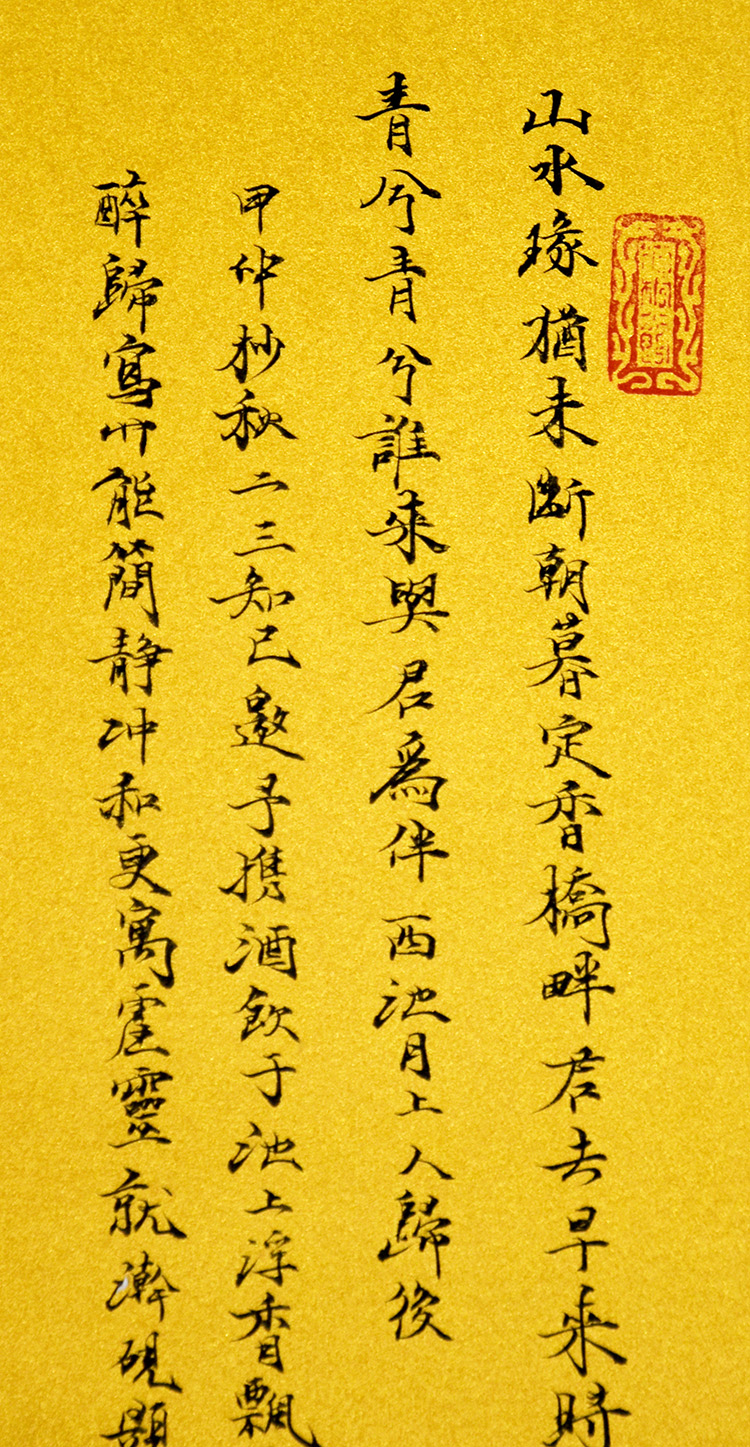 山水琢猶未斷朝暮定香橋畔君去早來時
青兮青青兮誰來與君為伴西池月上人歸後
甲仲杪秋二三知己邀予携酒飲于池上浮香飄
醉歸寫竹能簡靜冲和更寓靈就澣硯題